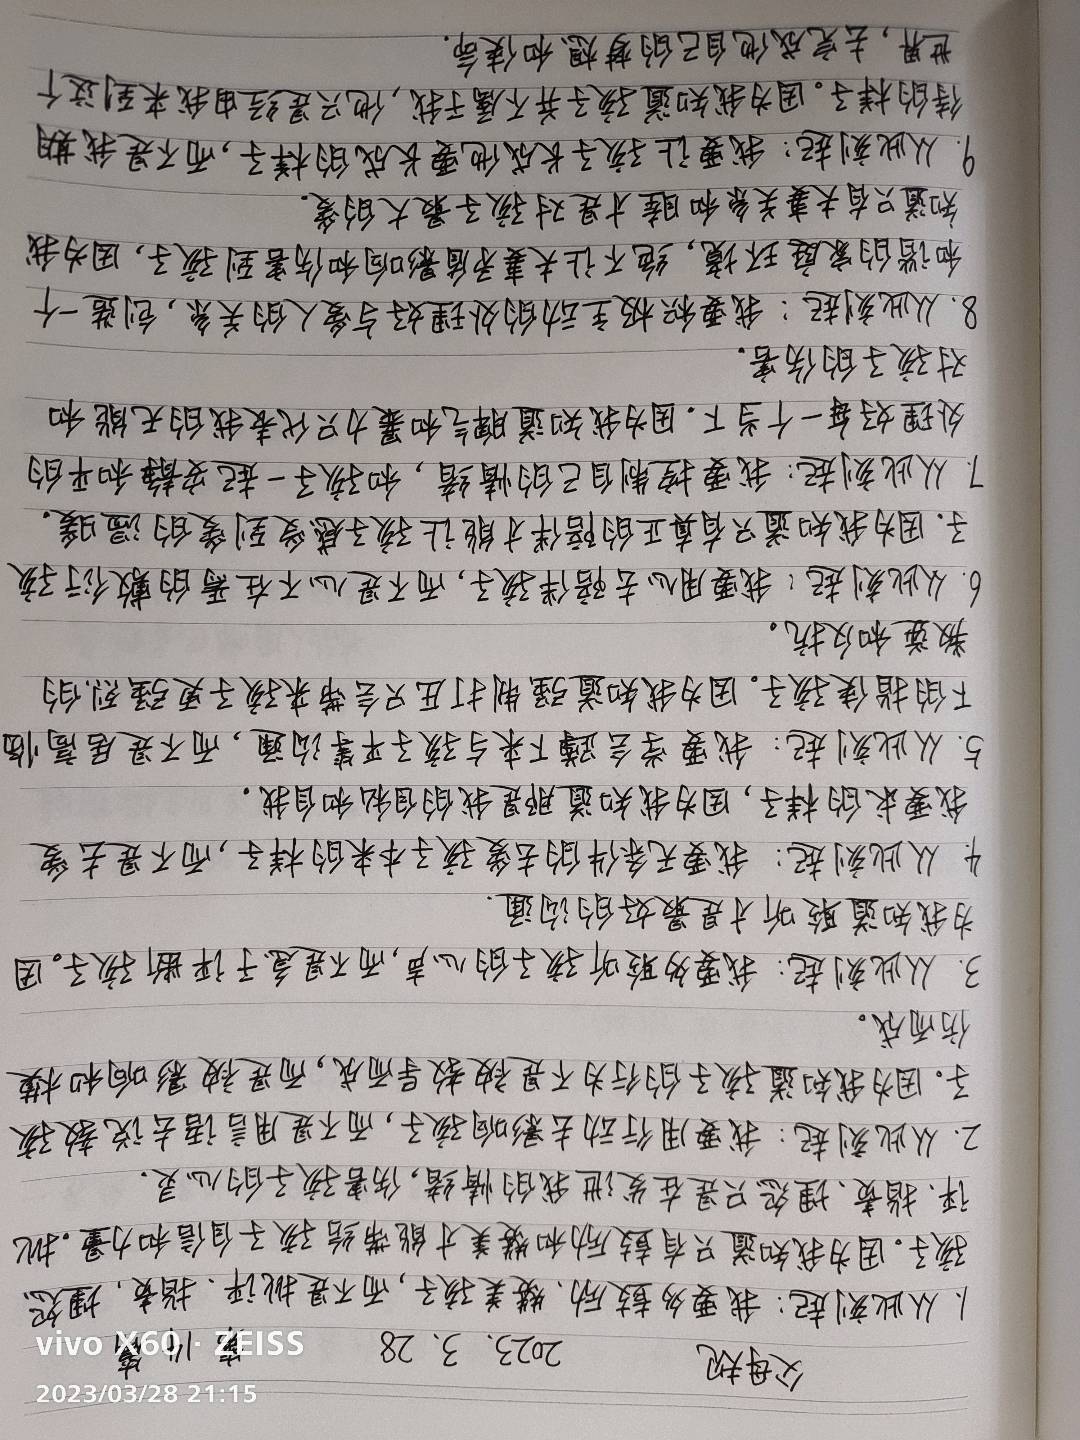 父母规
2023. 3. 28
第 化 篇
1. 从此刻起：我要多鼓励、赞美孩子，而不是批评、指责、埋怨
孩子。因为我知道只有鼓励和赞美才能带给孩子自信和力量。批
评、指责、埋怨只是在发泄我的情绪，伤害孩子的心灵.
2. 从此刻起：我要用行动去影响孩子，而不是用言语去说教孩
子。因为我知道孩子的行为不是被教导而成，而是被影响和模
仿而成。
3. 从此刻起：我要多聆听孩子的心声，而不是急于评断孩子。因
为我知道聆听才是最好的沟通.
4. 从此刻起：我要无条件的去爱孩子本来的样子，而不是去爱
我要求的样子，因为我知道那是我的自私和自我.
5. 从此刻起：我要学会蹲下来与孩子平等沟通，而不是居高临
下的指使孩子。因为我知道强制打压只会带来孩子更强烈的
叛逆和反抗。
6. 从此刻起：我要用心去陪伴孩子，而不是心不在焉的敷衍孩
子. 因为我知道只有真正的陪伴才能让孩子感受到爱的温暖.
7. 从此刻起：我要控制自己的情绪，和孩子一起安静和平的
处理好每一个当下. 因为我知道脾气和暴力只代表我的无能和
对孩子的伤害.
8. 从此刻起：我要积极主动的处理好与爱人的关系，创造一个
和谐的家庭环境，绝不让夫妻矛盾影响和伤害到孩子，因为我
知道只有夫妻关系和睦才是对孩子最大的爱.
9. 从此刻起：我要让孩子长成他要长成的样子，而不是我期
待的样子。因为我知道孩子并不属于我，他只是经由我来到这个
世界，去完成他自己的梦想和使命.
vivo X60 · ZEISS
2023/03/28 21:15